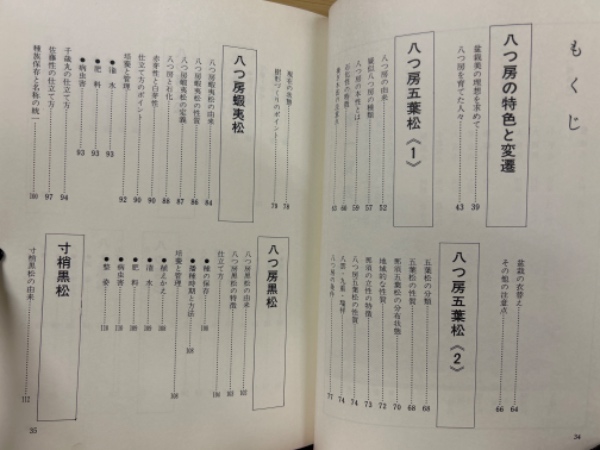 もくじ
八つ房の特色と変遷
盆栽美の理想を求めて 39
八つ房を育てた人々 43
八つ房五葉松《1》
八つ房の由来 52
疑似八つ房の種類 57
八つ房の本性とは 59
石化性の特徴 60
盆栽の衣替え 64
その他の注意点 66
八つ房五葉松《2》
五葉松の分類 68
五葉松の性質 68
那須五葉松の分布状態 70
地域的な性質 72
那須の立性の特徴 73
八つ房五葉松の性質 74
八雲・九重・瑞祥 74
34
現在の改題 76
樹形づくりのポイント 78
八つ房蝦夷松
八つ房蝦夷松の由来 84
八つ房蝦夷松の性質 86
八つ房蝦夷松の定義 87
八つ房と石化 88
赤芽性と白芽性 90
仕立て方のポイント 90
培養と管理 92
●潅水 93
●肥料 93
●病虫害 93
千歳丸の仕立て方 94
佐藤性の仕立て方 97
種族保存と名称の統一 100
八つ房黒松
八つ房黒松の由来 102
八つ房黒松の特徴 102
仕立て方 104
●種の保存
●播種時期と方法 108
培養と管理 108
●植えかえ 108
●潅水 109
●肥料
●病虫害 110
●整姿 110
寸梢黒松
寸梢黒松の由来 112
35